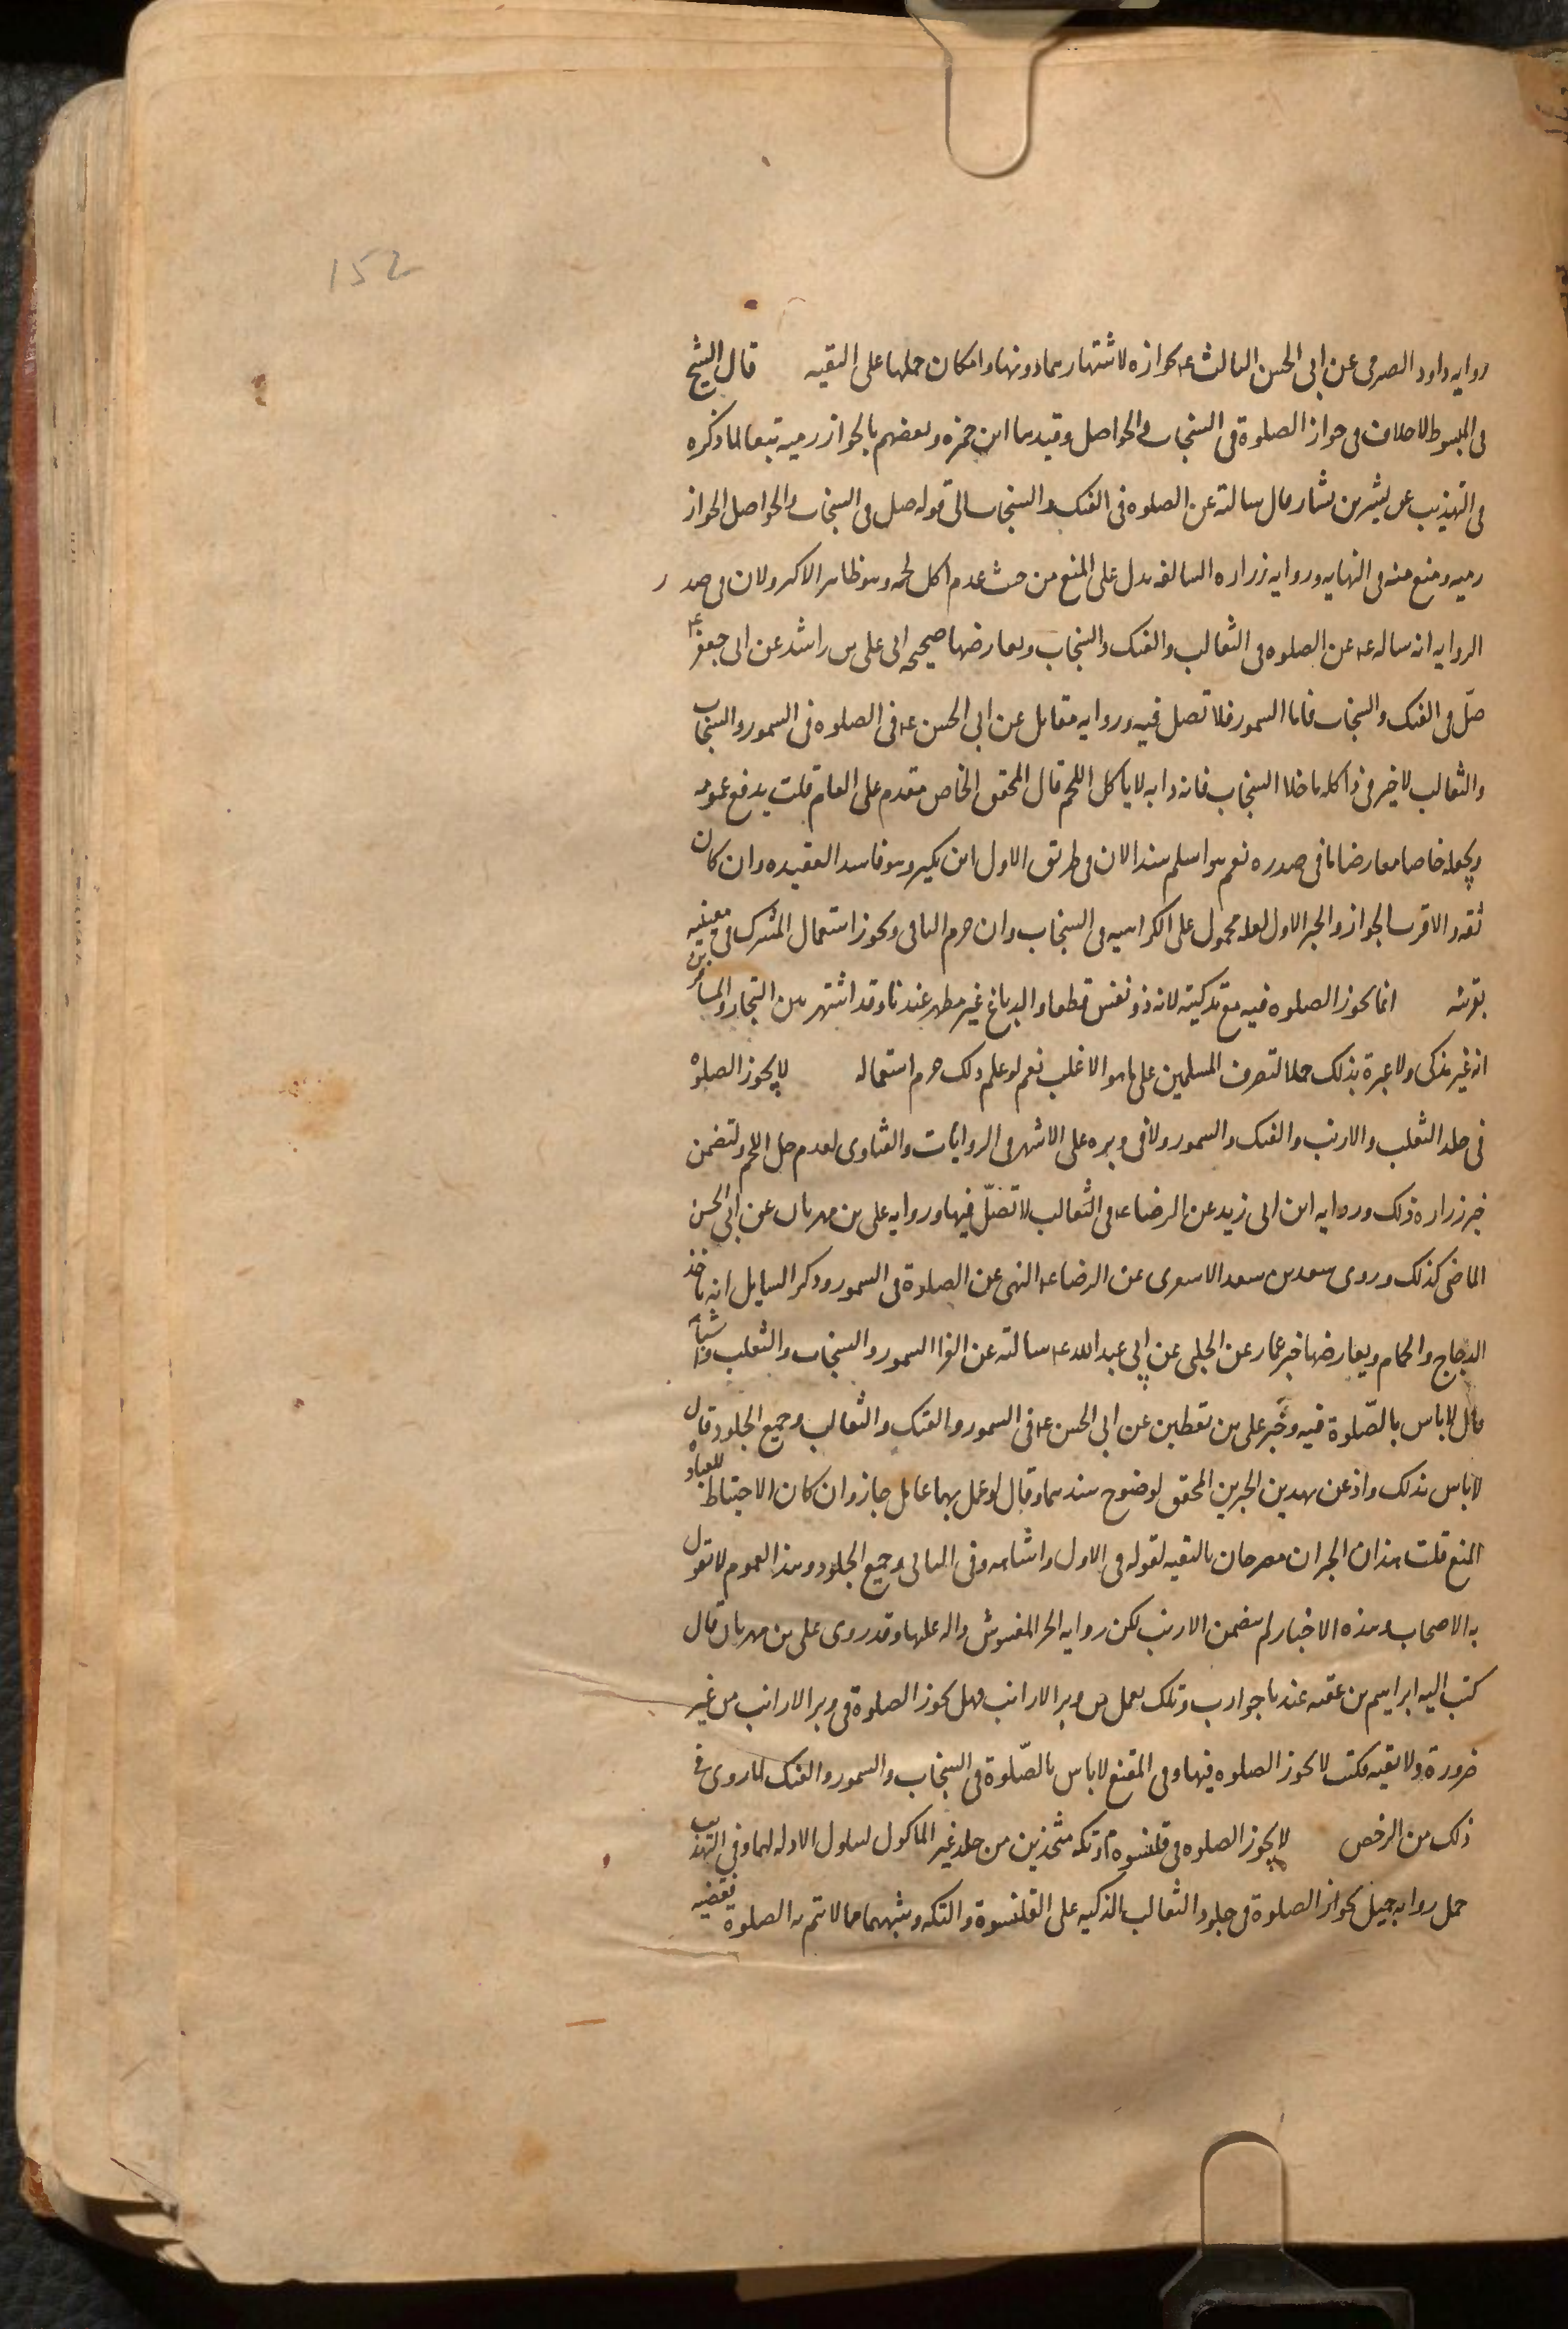 152
روايه داود الصرمى عن ابى الحسن الثالث ع بجوازه لاشتهارهما دونها وامكان حملها على التقيه قال الشيخ
فى المبسوط لا خلاف فى جواز الصلوة فى السنجاب والحواصل وقيدهما ابن حمزه وبعضهم بالخوارزميه تبعا لما ذكره
فى التهذيب عن بشير بن بشار قال سالته عن الصلوه فى الفنك والسنجاب الى قوله صل فى السنجاب والحواصل الخوارز
رميه ومنع منه فى النهايه وروايه زراره السالفه تدل على المنع من حيث عدم اكل لحمه وهو ظاهر الاكثر ولان فى صدر
الروايه انه ساله ع عن الصلوه فى الثعالب والفنك والسنجاب ويعارضها صحيحه ابى على بن راشد عن ابى جعفر ع
صلّ فى الفنك والسنجاب فاما السمور فلا تصل فيه وروايه مقاتل عن ابى الحسن ع فى الصلوه فى السمور والسنجاب
والثعالب لا خير فى ذا كله ما خلا السنجاب فانه دابه لا ياكل اللحم قال المحقق الخاص مقدم على العام قلت يدفع عمومه
ويجعله خاصا معارضا ما فى صدره نعم هو اسلم سندا لان فى طريق الاول ابن بكير وهو فاسد العقيده وان كان
ثقه والاقرب الجواز والخبر الاول لعله محمول على الكراهيه فى السنجاب وان حرم الباقى ويجوز استعمال المشترك فى معنييه
بقرينه انما يجوز الصلوه فيه مع تذكيته لانه ذو نفس قطعا والدباغ غير مطهر عندنا وقد اشتهر بين التجار والمسافرين
انه غير مذكى ولا عبرة بذلك حملا لتصرف المسلمين على ما هو الاغلب نعم لو علم ذلك حرم استعماله لا يجوز الصلوة
فى جلد الثعلب والارنب والفنك والسمور ولا فى وبره على الاشهر فى الروايات والفتاوى لعدم حل اللحم ولتضمن
خبر زراره ذلك وروايه ابن ابى زيد عن الرضا ع فى الثعالب لا تصلّ فيها وروايه على بن مهزيار عن ابى الحسن
الماضى كذلك وروى سعد بن سعد الاشعرى عن الرضا ع النهى عن الصلوة فى السمور وذكر السايل انه ياخذ
الدجاج والحمام ويعارضها خبر عمار عن الحلبى عن ابى عبد الله ع سالته عن الفرا السمور والسنجاب والثعلب واشباهه
قال لا باس بالصّلوة فيه وخبر على بن يقطين عن ابى الحسن ع فى السمور والفنك والثعالب وجميع الجلود قال
لا باس بذلك واذعن بهذين الخبرين المحقق لوضوح سندهما وقال لو عمل بهما عامل جاز وان كان الاحتياط للعباده
المنع قلت هذان الخبران مصرحان بالتقيه لقوله فى الاول واشباهه وفى الثانى وجميع الجلود وهذا العموم لا يقول
به الاصحاب وهذه الاخبار لم يتضمن الارنب لكن روايه الخز المغشوش داله عليها وقد روى على بن مهزيار قال
كتب اليه ابراهيم بن عقبه عندنا جوارب وتكك تعمل من وبر الارانب فهل يجوز الصلوة فى وبر الارانب من غير
ضرورة ولا تقيه فكتب لا يجوز الصلوه فيها وفى المقنع لا باس بالصّلوة فى السنجاب والسمور والفنك لما روى فى
ذلك من الرخص لا يجوز الصلوه فى قلنسوة او تكه متخذين من جلد غير الماكول لتناول الادله لهما وفى التهذيب
حمل روايه جميل بجواز الصلوة فى جلود الثعالب الذكيه على القلنسوة والتكه وشبههما مما لا تتم به الصلوة بقضيه